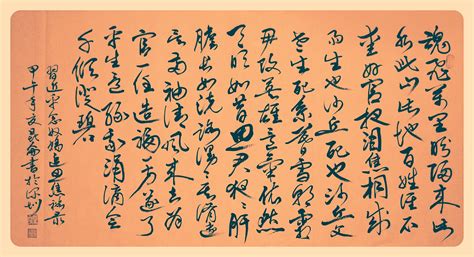 魂飛萬里盼歸來此
水此山此地百姓谁不
爱好官把泪焦桐成
雨生也沙丘死也沙丘父
老生死系暮雪朝霜
毋改英雄意气依然
月明如昔思君夜夜肝
膽長如洗路漫漫其修遠
矣两袖清风来去为
官一任造福一方遂了
平生意绿我涓滴会它
千顷澄碧
習近平念奴嬌追思焦裕禄
甲午年 昆侖書於深圳